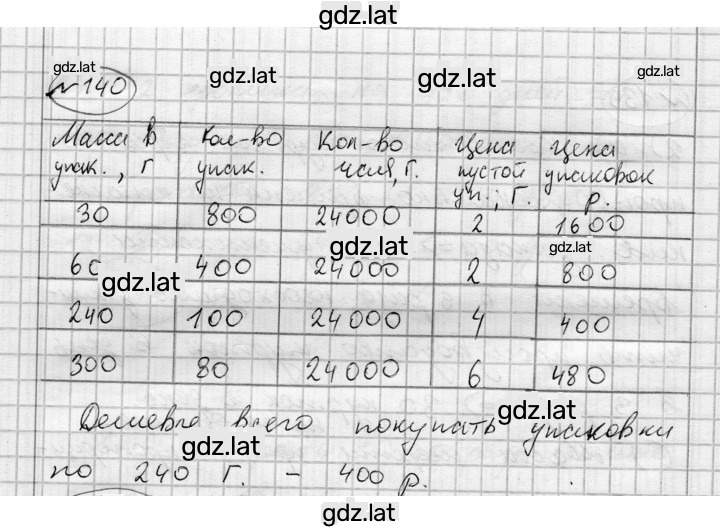 gdz.lat
gdz.lat gdz.lat gdz.lat gdz.lat
№ 140
Масса в упак., г Кол-во упак. Кол-во чая, г. Цена пустой уп., г. Цена упаковок р.
30 800 24000 2 1600
gdz.lat gdz.lat
60 400 24000 2 800
gdz.lat
240 100 24000 4 400
300 80 24000 6 480
gdz.lat
Дешевле всего покупать упаковки
gdz.lat
по 240 г. - 400 р.
gdz.lat